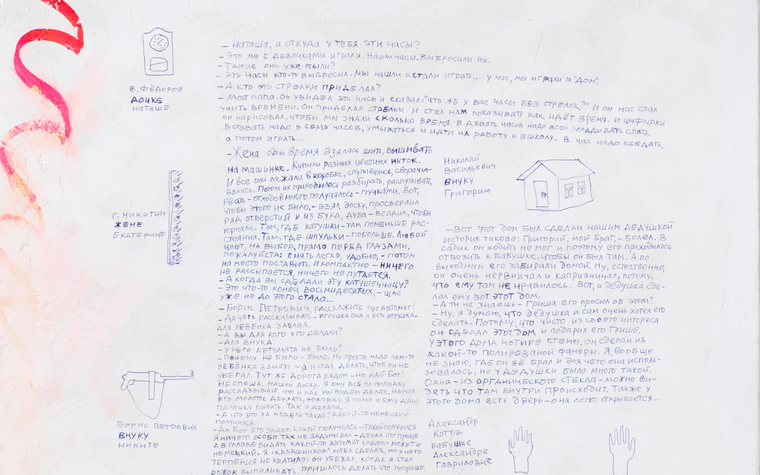 — Наташа, а откуда у тебя эти часы?
— Это мы с девочками играли. Нашли часы. Выбросили их.
— Такие они уже были?
— Эти часы кто-то выбросил. Мы нашли и стали играть... у нас, мы играли в "дом".
— А кто эти стрелки приделал?
— Мой папа. Он увидел эти часы и сказал: "Что же у вас часы без стрелок?" И он нас стал
учить времени. Он приделал стрелки. И стал нам показывать как идёт время. И циферки
он нарисовал, чтобы мы знали сколько время. В девять часов надо всех укладывать спать,
вставать надо в семь часов, умываться и идти на работу и в школу. В час надо обедать,
а потом играть...
В. Фёдоров
дочке
Наташе
— Жена одно время взялась шить, вышивать
на машинке. Купили разных цветных ниток.
И все они лежали в коробке, спутывались, сворачи-
вались. Потом их приходилось разбирать, распутывать,
рвать —
чтобы этого не было, — взял доску, просверлил
ряд отверстий и из бука, дуба — всадил, чтобы
торчали. Там, где катушки — там поменьше рас-
стояния. Там, где шпульки — побольше. Любой
цвет, на выбор, прямо перед глазами,
пожалуйста: снять легко, удобно, — потом
на место поставить. И компактно — ничего
не рассыпается, ничего не путается.
— А когда вы сделали эту катушечницу?
— Это что-то конец восьмидесятых, — щас
уже не до этого стало...
Г. Никитин
жене
Екатерине
Николай
Васильевич
внуку
Григорию
— Вот этот дом был сделан нашим дедушкой
история такова: Григорий, мой брат, — болел. В
садик он ходить не мог и поэтому его приходилось
отвозить к бабушке, чтобы он был там. А по
выходным его забирали домой. Ну, естественно,
он очень нервничал и капризничал, потому,
что ему там не нравилось. Вот, и дедушка сде-
лал ему вот этот дом.
— А ты не знаешь — Гриша его просил об этом?
— Ну, я думаю, что дедушка и сам очень хотел его
сделать. Потому, что чисто из своего интереса
он сделал этот дом и подарил его Грише.
У этого дома четыре стены, он сделан из
какой-то полированой фанеры. Я, вообще
не знаю, где он её брал и для чего она исполь-
зовалась, но у дедушки было много такой.
Окна — из органического стекла — можно ви-
деть что там внутри происходит. Также у
этого дома есть дверь — она легко открывается...
— Борис Петрович, расскажите про автомат!
— Да чего рассказывать — игрушка она и есть игрушка
для ребёнка забава.
— А вы для кого его делали?
— Для внука.
— У него автомата не было?
— Почему не было — было. Ну просто надо чем-то
ребёнка занять — я и стал делать, чтобы он не
убегал. Тут же дорога рядом — не дай Бог!
Не спеша. Нашли доску. Я ему всё по порядку
рассказываю, что и как мы будем делать. Начнём
его молоток держать, ножовку. Я пилю и ему дам
палочку пилить. Так и делали.
— А что это за модель такая? Какой-то немецкий
получился.
— Да Бог его знает. Какой получился — такой получился.
Я ничего особо так не задумывал — делал что проще.
А в голове видать какой-то автомат сидел — может и
немецкий. Я "Калашников" хотел сделать, но у него
терпения не хватило: он убежал, когда я стал
рожок выпиливать. Пришлось делать что попроще.
Борис Петрович
внуку
Никите
Александр
Котов
бабушке
Александре
Гавриловне